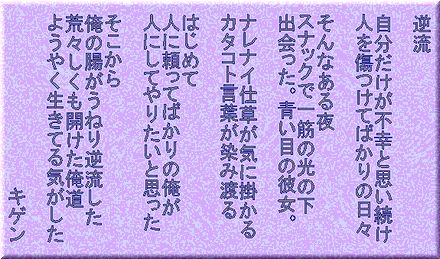 逆流
自分だけが不幸と思い続け
人を傷つけてばかりの日々
そんなある夜
スナックで一筋の光の下
出会った。青い目の彼女。
ナレナイ仕草が気に掛かる
カタコト言葉が染み渡る
はじめて
人に頼ってばかりの俺が
人にしてやりたいと思った
そこから
俺の腸がうねり逆流した
荒々しくも開けた俺道
ようやく生きてる気がした
キゲン